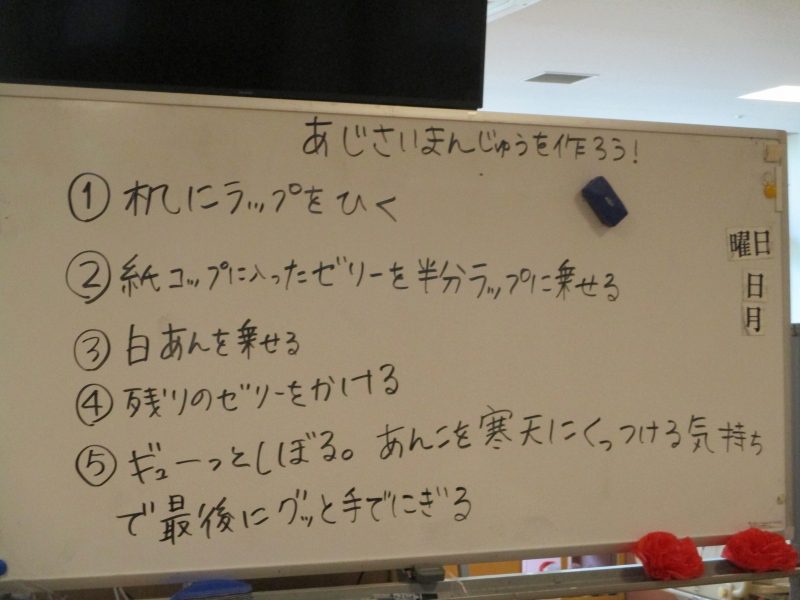 あじさいまんじゅうを作ろう!
① 机にラップをひく
② 紙コップに入ったゼリーを半分ラップに乗せる
③ 白あんを乗せる
④ 残りのゼリーをかける
⑤ ギューっとしぼる。あんこを寒天にくっつける気持ち
で最後にグッと手でにぎる
曜日
日
月